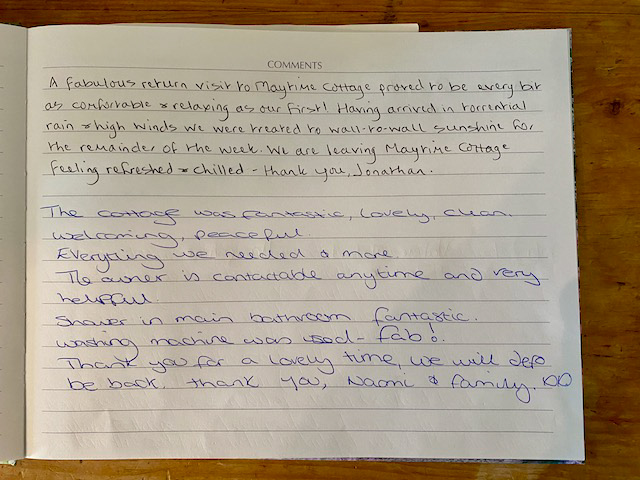 COMMENTS
A fabulous return visit to Maytime Cottage proved to be every bit
as comfortable & relaxing as our first! Having arrived in torrential
rain & high winds we were treated to wall-to-wall sunshine for
the remainder of the week. We are leaving Maytime Cottage
feeling refreshed & chilled - thank you, Jonathan.
The cottage was fantastic, lovely, clean.
welcoming, peaceful.
Everything we needed & more.
The owner is contactable anytime and very
helpful.
Shower in main bathroom fantastic.
washing machine was used - fab!
Thank you for a lovely time, we will defo
be back. thank you, Naomi & family.